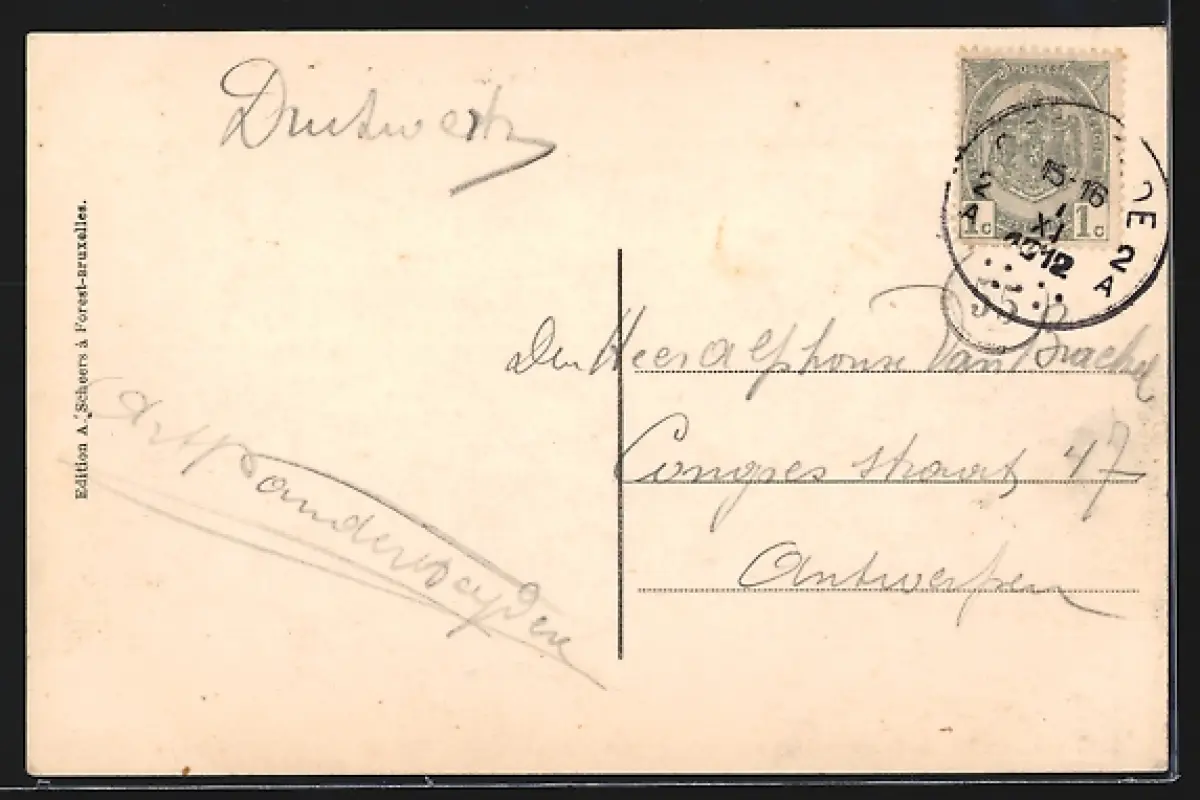 Drukwerk
Edition A. Scheers à Forest-Bruxelles.
1c 1c
15-16
XI
1912
2 A
DE 2 A
55
Den Heer Alphonse Van Brachel
Congres straat 47
Antwerpen
Vanderweyden